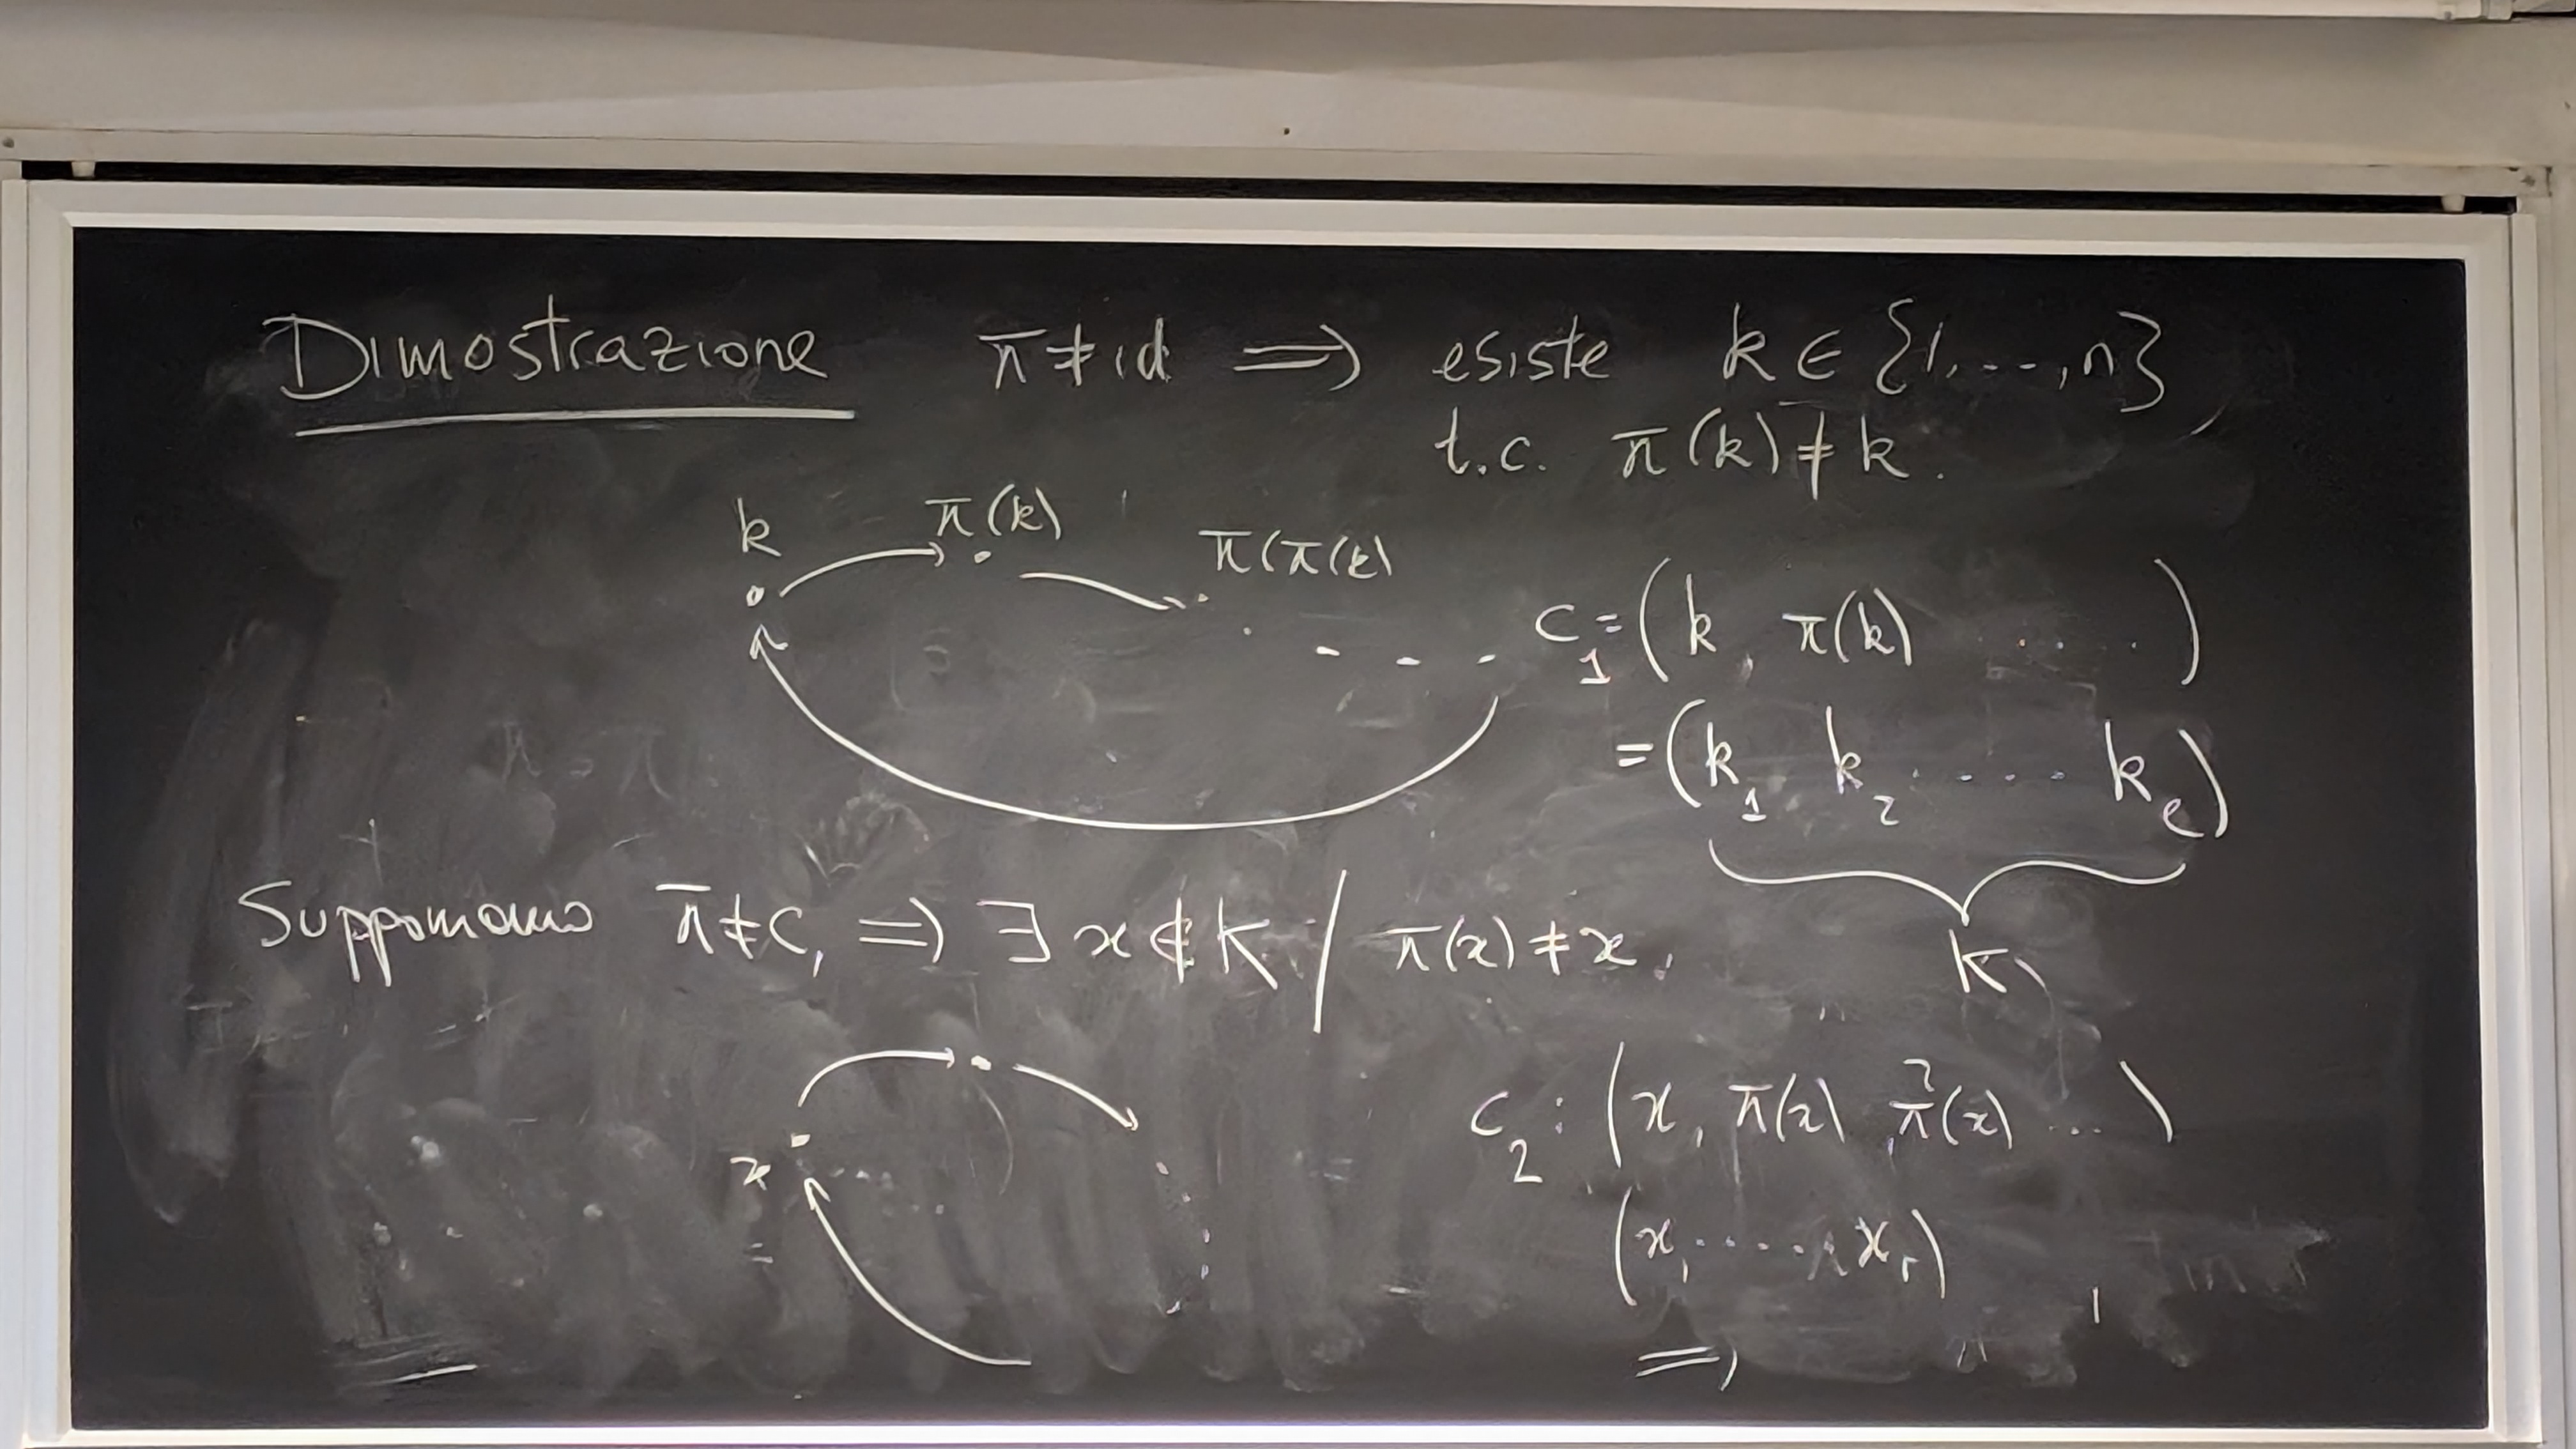 Dimostrazione π ≠ id ⟹ esiste k ∈ {1, ..., n}
t.c. π(k) ≠ k.
k π(k) π(π(k)
c₁ = (k, π(k) ....)
= (k₁ k₂ ..... kₑ)
K
Supponiamo π ≠ c₁ ⟹ ∃ x ∉ K / π(x) ≠ x.
x
c₂ : (x, π(x), π²(x) ...)
(x₁ ..... xᵣ)
⟹